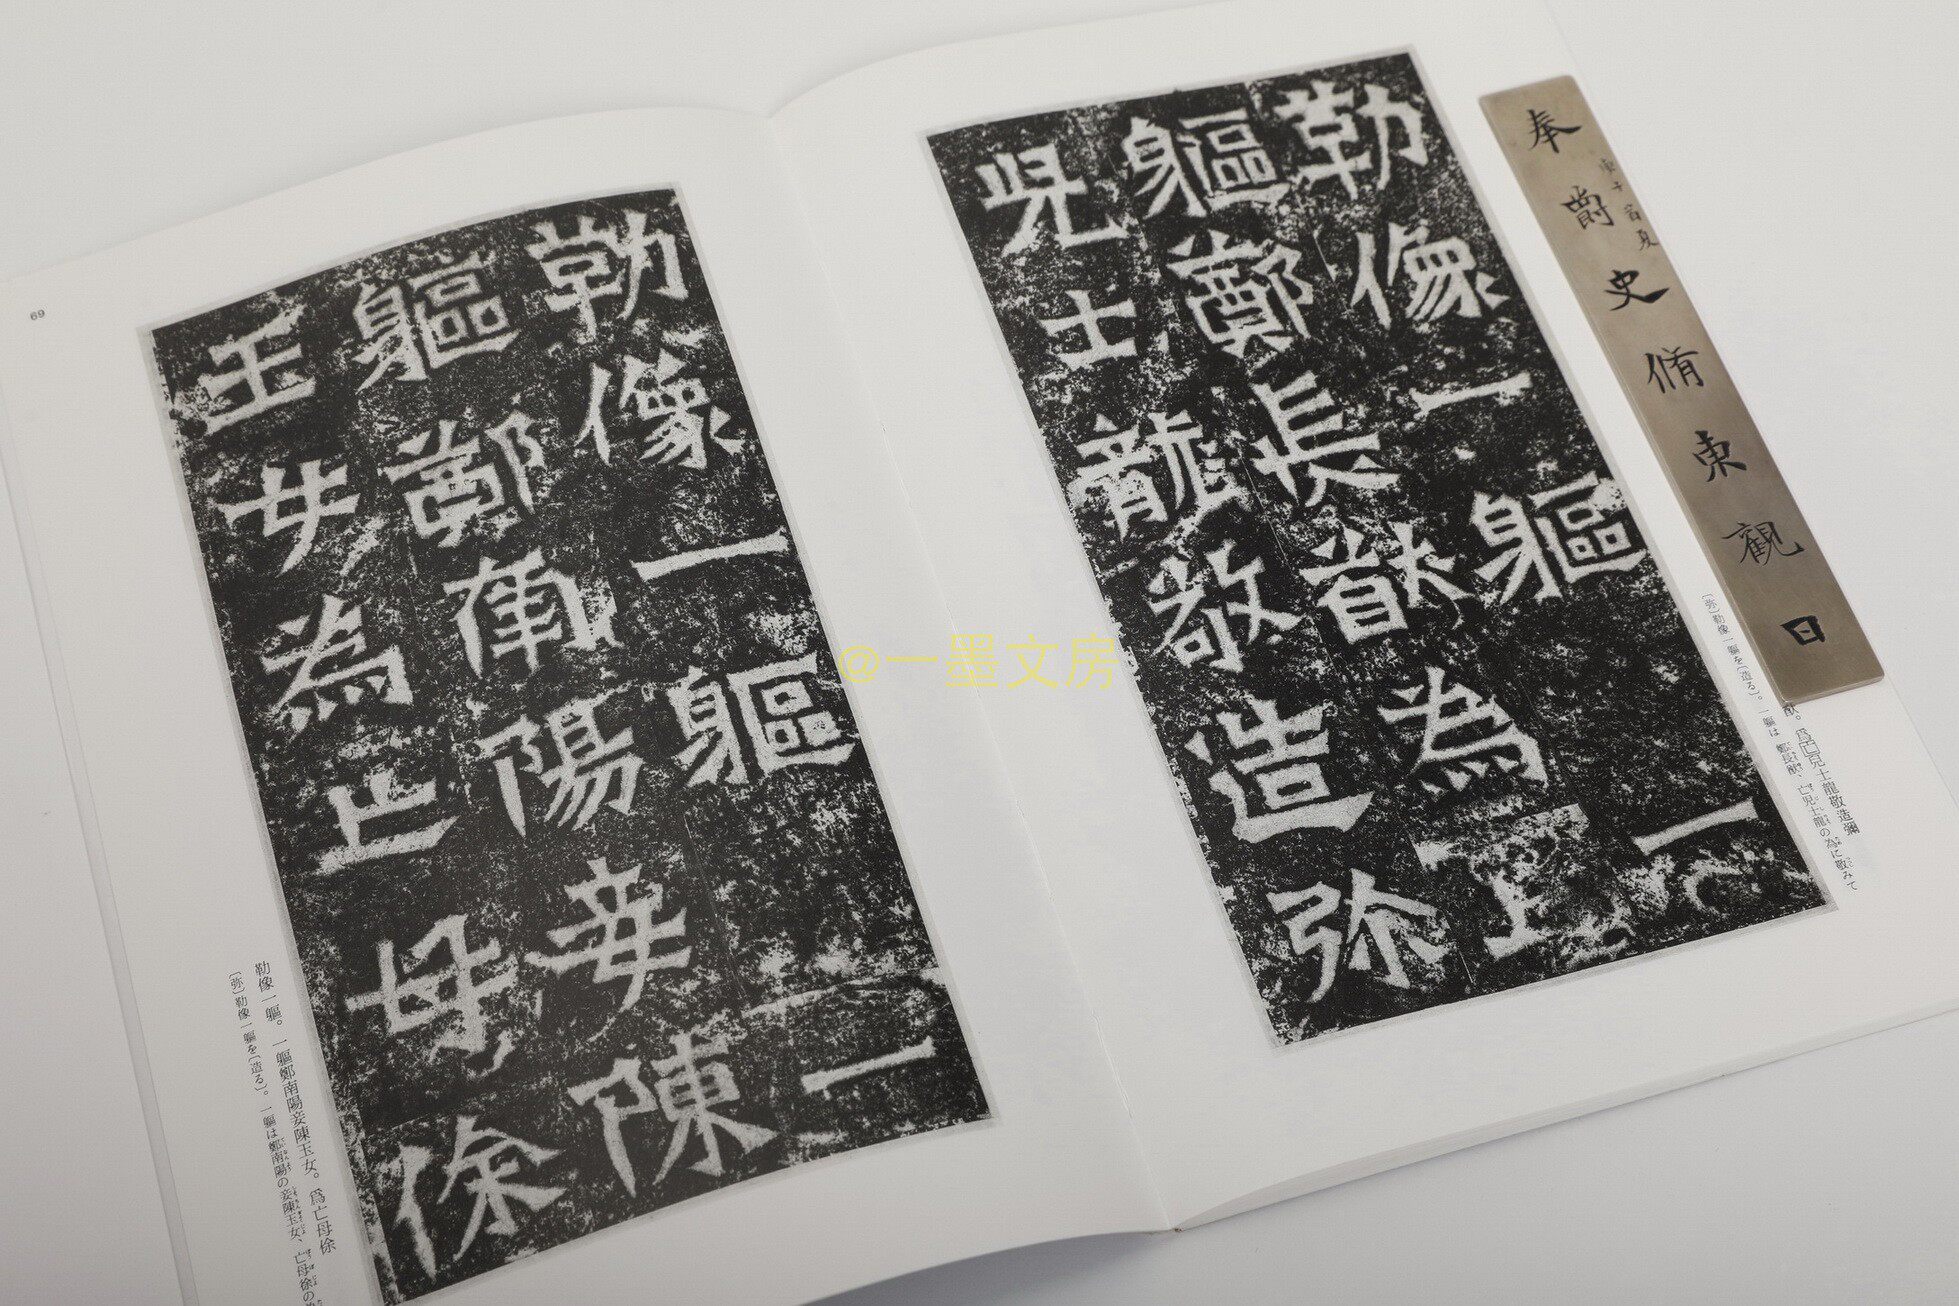 奉爵史脩東觀日
庚子首夏
勒像一軀一
軀鄭長猷為
兒士龍敬造弥
猷。爲亡兒士龍敬造彌
〔弥〕勒像一軀を〔造る〕。一軀は鄭長猷、亡児士龍の為に敬みて
@一墨文房
勒像一軀一
軀鄭南陽妾陳
玉女為亡母徐
勒像一軀。一軀鄭南陽妾陳玉女。爲亡母徐
〔弥〕勒像一軀を〔造る〕。一軀は鄭南陽の妾陳玉女、亡母徐の
69